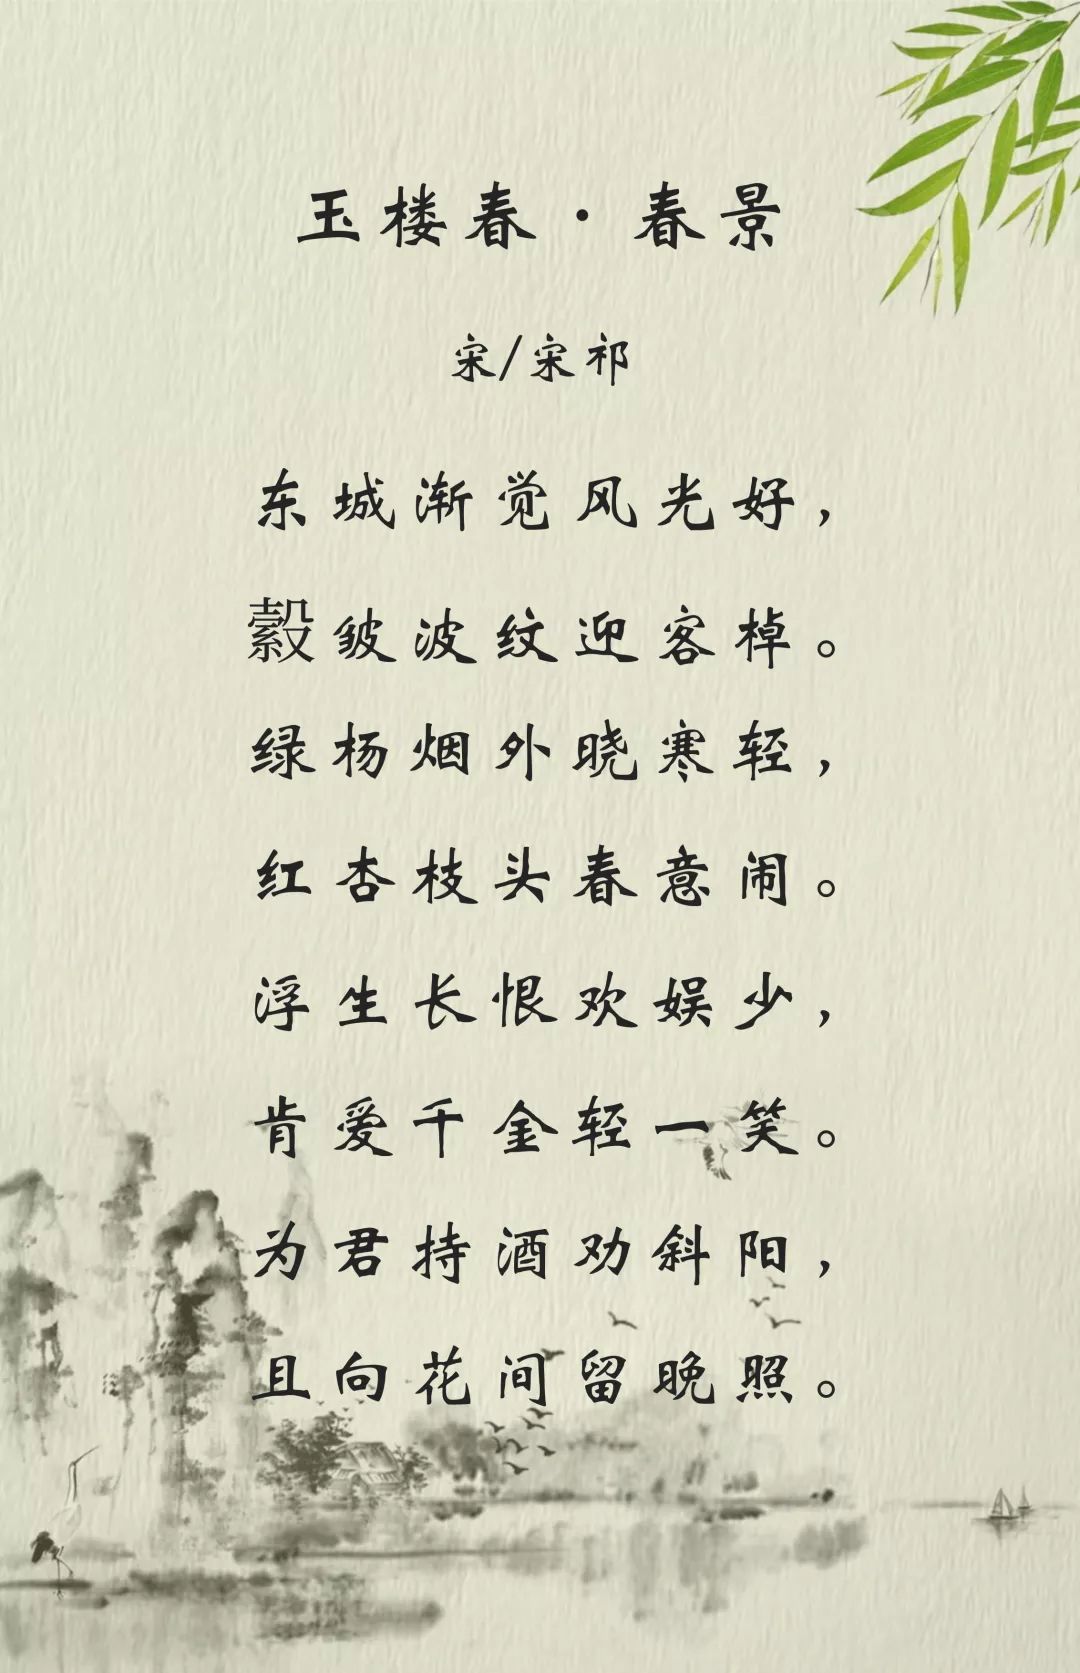 玉楼春·春景
宋/宋祁
东城渐觉风光好，
縠皱波纹迎客棹。
绿杨烟外晓寒轻，
红杏枝头春意闹。
浮生长恨欢娱少，
肯爱千金轻一笑。
为君持酒劝斜阳，
且向花间留晚照。